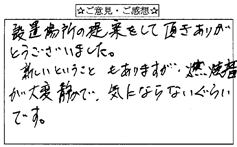 ☆ご意見・ご感想☆
設置場所の提案をして頂きありが
とうございました。
新しいということもありますが、燃焼音
が大変静かで、気にならないぐらい
です。